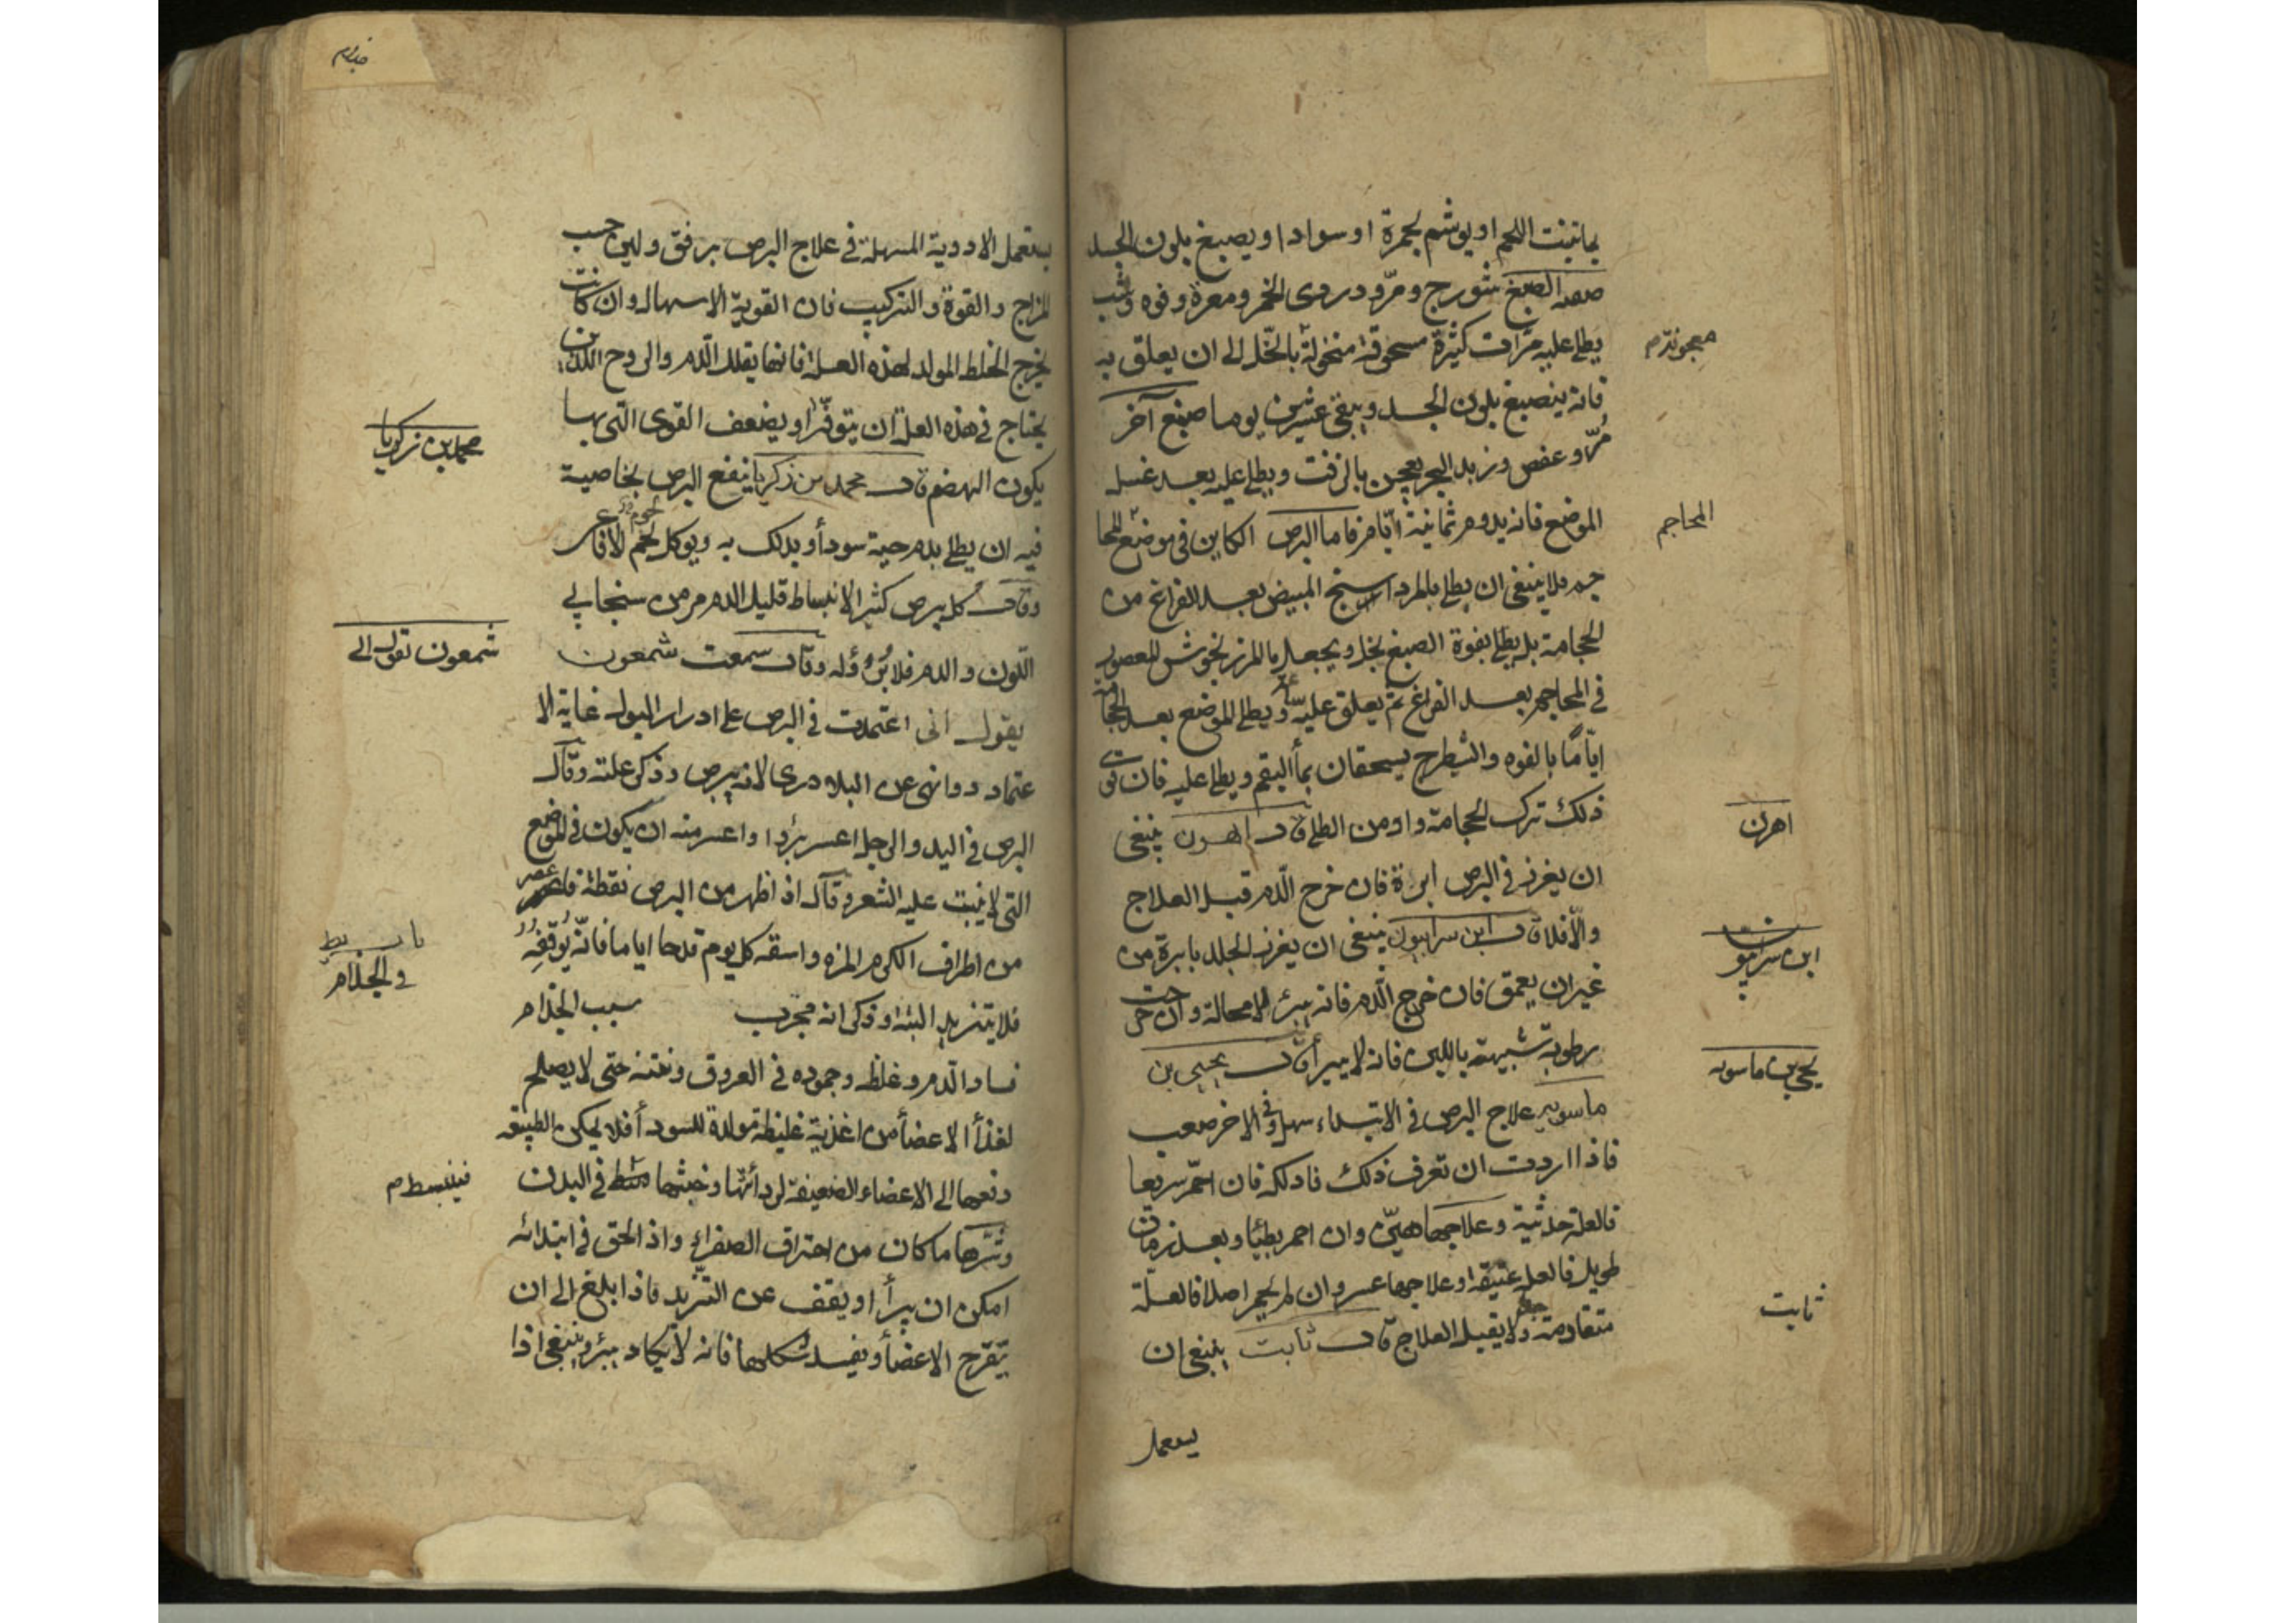 بما ينبت اللحم او يوشم بحمرة او سوادا و يصبغ بلون الجسد
صفة الصبغ شورج ومرّ ودردى الخمر ومغرة وفوه وشب
يطلى عليه مرّات كثيرة مسحوقة منخولة بالخلّ الى ان يعلق به
فانه ينصبغ بلون الجسد ويبقى عشرين يوما صبغ آخر
مُرّ وعفص وزبد البحر يعجن بالزفت ويطلى عليه بعد غسل
الموضع فانه يدوم ثمانية ايّام فاما البرص الكاين فى موضع المحا
جم فلا ينبغى ان يطلى بالمرداسنج المبيض بعد الفراغ من
الحجامة بل يطلى بفوة الصبغ بخل ويجعل بالمرزنخوش المعصور
فى المحاجم بعد الفراغ ثم يعلق عليه ويطلى الموضع بعد الحجامة
ايّامًا بالفوه والشيطرج يسحقان بمأ البقم ويطلى عليه فان
ذلك ترك الحجامة واومن الطلى قال اهرن ينبغى
ان يغرز فى البرص ابرة فان خرج الدم قبل العلاج
والّا فلا قال ابن سرابيون ينبغى ان يغرز الجلد بابرة من
غير ان يعمق فان خرج الدم فانه يبرئ لا محالة وان خرجت
رطوبة شبيهة باللبن فانه لا يبرأ قال يحيى بن
ماسويه علاج البرص فى الابتداء سهل وفى الاخر صعب
فاذا اردت ان تعرف ذلك فادلكه فان احمرّ سريعا
فالعلة حدثية وعلاجها هيّن وان احمر بطيًا وبعد زمان
طويل فالعلة عتيقة وعلاجها عسر وان لم يحمر اصلا فالعلّة
متقادمة ولا يقبل العلاج قال ثابت ينبغى ان
يستعمل
معجوندم
المحاجم
اهرن
ابن سرابيون
يحيى بن ماسويه
ثابت
يستعمل الادوية المسهلة فى علاج البرص برفق ولين حسب
المزاج والقوة والتركيب فان القوية الاسهال وان كانت
يخرج الخلط المولد لهذه العلة فانها يقلل الدم والروح اللذين
يحتاج فى هذه العلة ان يتوفّرا ويضعف القوى التى بها
يكون الهضم قال محمد بن زكريا ينفع البرص بخاصية
فيه ان يطلى بدم حية سودأ ويدلك به ويوكل لحم الافاعى
وقال كل برص كثير الانبساط قليل الدم من سنجابى
اللون والدم فلا بُرؤ له وقال سمعت شمعون
يقول انى اعتمدت فى البرص على ادرار البول غاية الا
عتماد وانهى عن البلادرى لانه يبرص وذكر علته وقال
البرص فى اليد والرجل اعسر برُوا واعسر منه ان يكون فى الموضع
التى لا ينبت عليه الشعر وقال اذ اظهر من البرص نقطة فاعصر
من اطراف الكرم المزه واسقه كل يوم قدحا اياما فانّه يُوقّفُه
فلا يتزيد البتة وذكر انه مجرب سبب الجذام
فساد الدم وغلظه وجموده فى العروق ونتنه حتى لا يصلح
لغذأ الاعضأ من اغذية غليظة مولدة للسودأ فلا يمكن الطبيعة
دفعها الى الاعضاء الضعيفة لردائتها وخبثها فى البدن
وشرّها ما كان من احتراق الصفراء واذ الحق فى ابتدائه
امكن ان يبرأ او يقف عن التزيد فاذا بلغ الى ان
يتقرح الاعضأ ويفسد شكلها فانه لا يكاد يبرؤ وينبغى اذا
محمد بن زكريا
شمعون نقول الى
باب
فى الجذام
فينبسط م
جذام